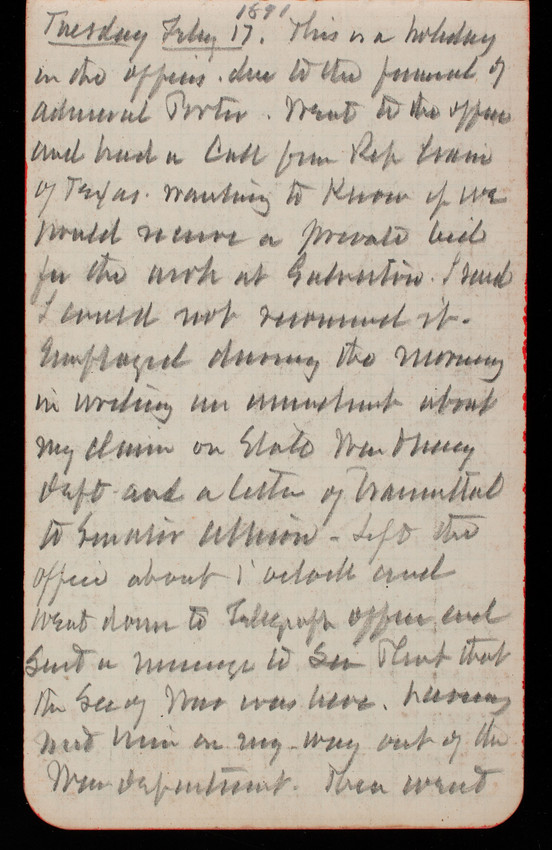 1891
Tuesday Feby 17. This is a holiday
in the offices due to the funeral of
Admiral Porter. Went to the office
and had a call from Rep Crain
of Texas wanting to know if we
would receive a private bid
for the work at Galveston. I said
I could not recommend it.
Engaged during the morning
in writing an amendment about
my claim on State War & Navy
Dept and a letter of transmittal
to Senator Allison - Left the
office about 1 oclock and
went down to Telegraph office and
sent a message to Sen that
the Sec of War was here. having
met him on my way out of the
War department. Then went